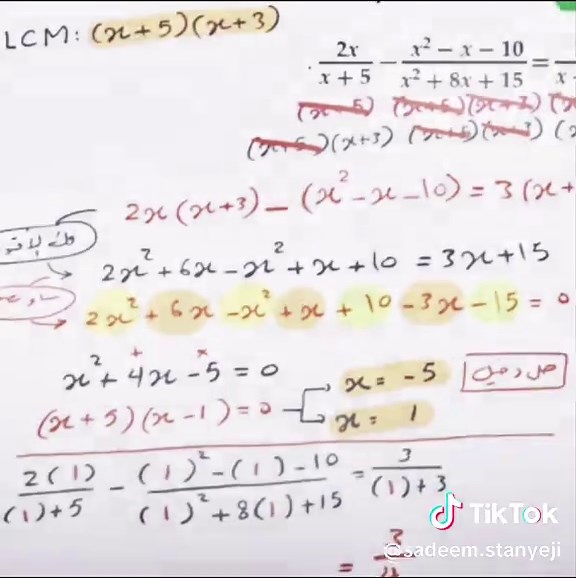 LCM: (x+5)(x+3)
2x/(x + 5) − (x² − x − 10)/(x² + 8x + 15) =
(x+5) (x+5)(x+3)
(x+5)(x+3) (x+5)(x+3)
2x(x+3) − (x² − x − 10) = 3(x+
2x² + 6x − x² + x + 10 = 3x + 15
2x² + 6x − x² + x + 10 − 3x − 15 = 0
+ ×
x² + 4x − 5 = 0
x = −5
(x+5)(x−1) = 0
x = 1
2(1)/((1)+5) − ((1)² − (1) − 10)/((1)² + 8(1) + 15) = 3/((1)+3)
TikTok
@sadeem.stanyeji
=